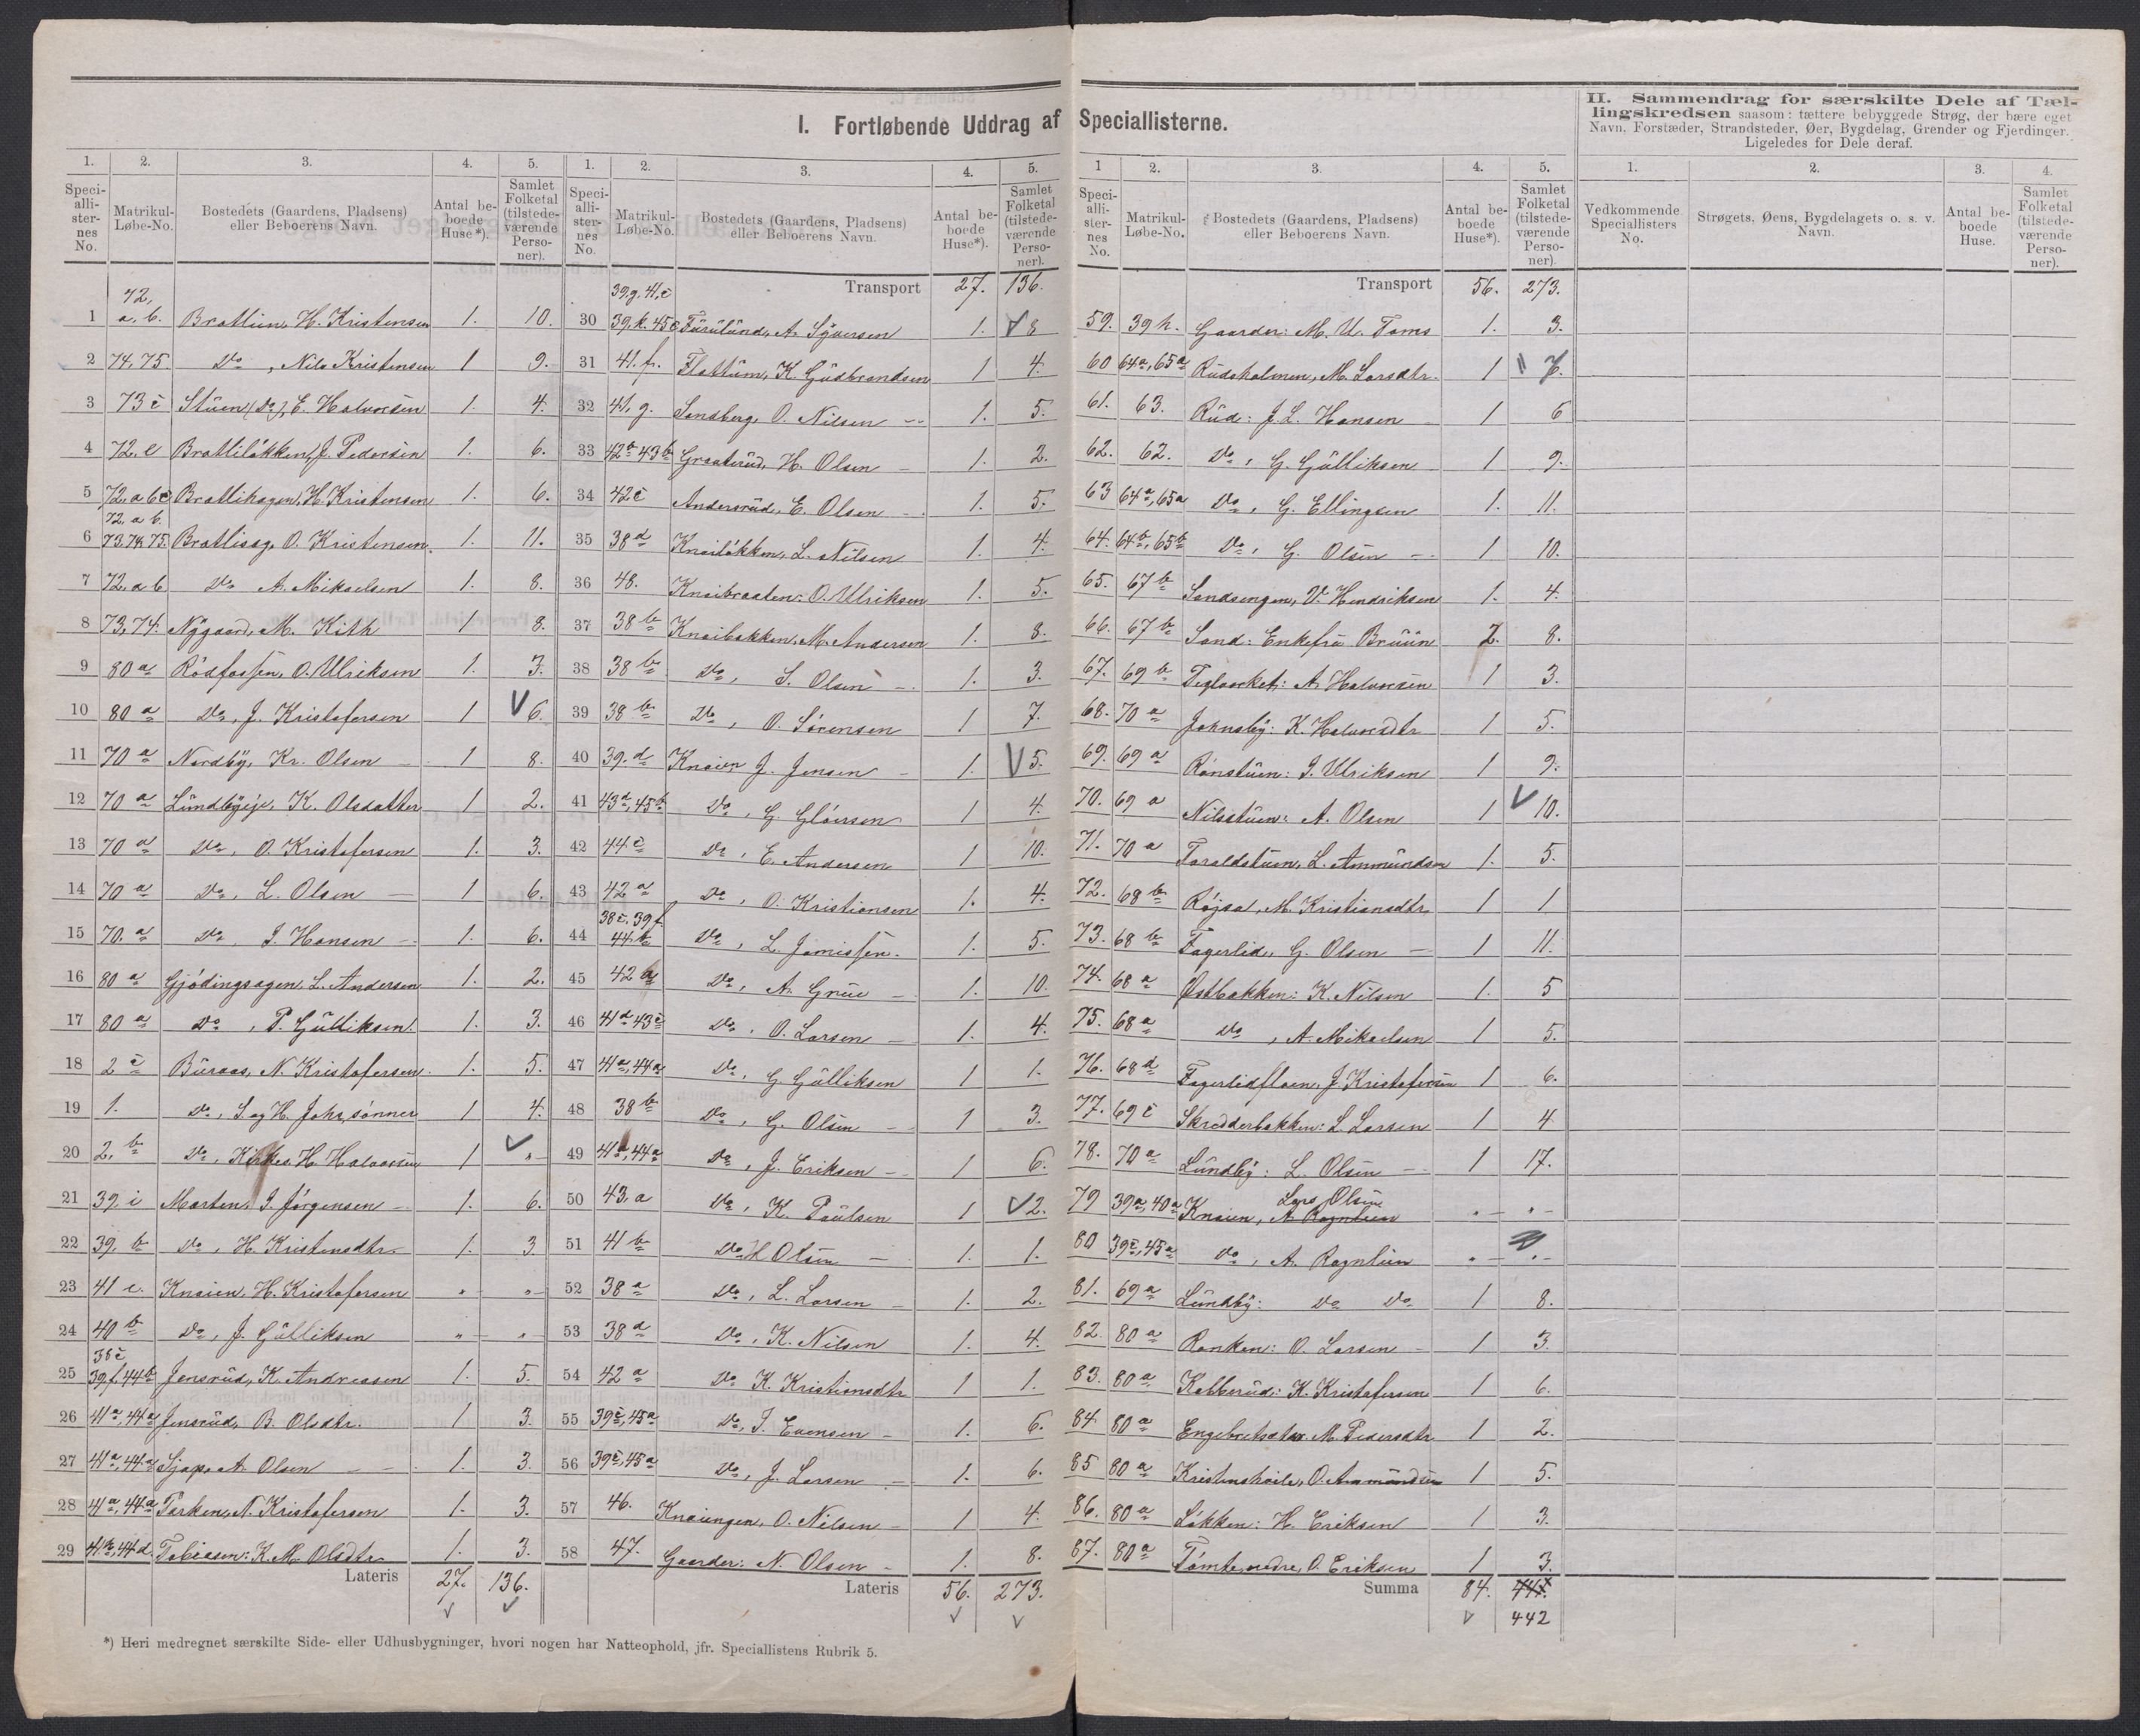 I. Fortløbende Uddrag af Speciallisterne.
II. Sammendrag for særskilte Dele af Tæl-
lingskredsen saasom: tættere bebyggede Strøg, der bære eget
Navn, Forstæder, Strandsteder, Øer, Bygdelag, Grender og Fjerdinger.
Ligeledes for Dele deraf.
1. 2. 3. 4. 5.
Speci-alli-ster-nes No. Matrikul-Løbe-No. Bostedets (Gaardens, Pladsens) eller Beboerens Navn. Antal be-boede Huse*). Samlet Folketal (tilstede-værende Perso-ner).
72,
1 a. b. Bratlien, H. Kristensen 1. 10.
2 74, 75. Do , Nils Kristensen 1 9.
3 73 c Stuen (Do), E. Halvorsen 1. 4.
4 72. e Bratliløkken, J. Pedersen 1. 6.
5 72, a b c Bratlihagen, H. Kristensen 1. 6.
72. a b.
6 73. 74. 75. Bratlieag, O. Kristensen 1. 11.
7 72, a b Do A. Mikaelsen 1. 8.
8 73, 74. Nygaard, M. Kith 1 8.
9 80 a Rødfossen, O. Ulriksen 1. 3.
10 80 a Do, J. Kristofersen 1 6.
11 70 a Nordby, Kr. Olsen 1 8.
12 70 a Lundbyeje, K. Olsdatter 1 2.
13 70 a Do, O. Kristofersen 1. 3.
14 70 a Do, L. Olsen 1 6.
15 70. a Do, J. Hansen 1. 6.
16 80 a Gjødingsagen, L. Andersen 1. 2.
17 80 a Do , P. Gulliksen 1. 3.
18 2 c Buraas, N. Kristofersen 1. 5.
19 1. Do, S. og H. Johs.sønner 1 4.
20 2. b Do, H. Halvorsen 1 -
21 39. i Morten, J. Jørgensen 1. 6.
22 39. b Do, H. Kristensdtr. 1. 3.
23 41 e. Knaien, H. Kristofersen " "
24 40 b Do, J. Gulliksen " "
38 c
25 39 f, 44 b Jensrud, K. Andreasen 1. 5.
26 41 a, 44 a Jensrud, B. Olsdtr. 1 3.
27 41 a, 44 a Sjap, A. Olsen 1. 3.
28 41 a, 44 a Parken, N. Kristofersen 1. 3.
29 44 d. Tobiasen: K. M. Olsdtr. 1. 3.
Lateris 27. 136.
1. 2. 3. 4. 5.
Speci-alli-ster-nes No. Matrikul-Løbe-No. Bostedets (Gaardens, Pladsens) eller Beboerens Navn. Antal be-boede Huse*). Samlet Folketal (tilstede-værende Perso-ner).
39. g. 41. c Transport 27. 136.
30 39. k. 45 c Furulund, A. Syversen 1. 8
31 41. f. Flattum, K. Gudbrandsen 1 4.
32 41. g. Sandberg, O. Nilsen 1. 5.
33 42 b 43 b Graaterud, H. Olsen 1. 2.
34 42 c Andersrud, E. Olsen 1. 5.
35 38 d Knailøkken, L. Nilsen 1. 4.
36 48. Knaibraaten: O. Ulriksen 1. 5.
37 38 b Knaibakken, M. Andersen 1. 8.
38 38 b Do, S. Olsen 1. 3.
39 38 b Do, O. Sørensen 1 7.
40 39. d Knaien J. Jensen 1. 5.
41 43 d, 45 b Do, G. Gløersen 1 4.
42 44 c Do, E. Andersen 1 10.
43 42 a Do, O. Kristiansen 1. 4.
38 c. 39 f
44 44. b Do, L. Jamissen. 1. 5.
45 42 a Do, A. Grue 1. 10.
46 41 d 43 c Do, O. Larsen 1. 4.
47 41 a, 44 a Do, G Gulliksen 1 1.
48 38 b Do, G. Olsen 1 3.
49 41 a, 44 a Do, J. Eriksen 1 6.
50 43. a Do, K. Paulsen 1 2.
51 41 b Do H Olsen 1. 1.
52 38 a Do, L. Larsen 1. 2.
53 38 d Do, K. Nilsen 1. 4.
54 42 a Do K. Kristiansdtr 1 1.
55 39 c, 45 a Do, J. Evensen 1. 6.
56 39 c, 45 a Do, J. Larsen 1. 6.
57 46. Knaiengen, O. Nilsen 1 4.
58 47. Gaarder: N. Olsen 1. 8.
Lateris 56. 273.
*) Heri medregnet særskilte Side- eller Udhusbygninger, hvori nogen har Natteophold, jfr. Speciallistens Rubrik 5.
1 2. 3. 4. 5.
Speci-alli-ster-nes No. Matrikul-Løbe-No. Bostedets (Gaardens, Pladsens) eller Beboerens Navn. Antal be-boede Huse*). Samlet Folketal (tilstede-værende Perso-ner).
Transport 56. 273.
59. 39 h. Gaarder: M. U. Toms 1. 3.
60 64 a, 65 a Rudsholmen, M. Larsdtr. 1 7.
61. 63. Rud: J. L. Hansen 1 6
62. 62. Do, G. Gulliksen 1 9.
63 64 a, 65 a Do, G. Ellingsen 1. 11.
64. 64 b, 65 b Do, G. Olsen 1 10.
65. 67 b Sandsengen, V. Hendriksen 1. 4.
66. 67 b Sand: Enkefru Bruun 2. 8.
67. 69 b Teglværket: A. Halvorsen 1 3.
68. 70 a Johnsby: K. Halvorsdtr 1 5.
69. 69 a Rønstuen: J. Ulriksen 1 9.
70. 69 a Nilsstuen: A. Olsen 1 10.
71. 70 a Taraldstuen, L. Ammundsen 1. 5.
72. 68 b Røjsa, M. Kristiansdtr. 1 1
73. 68 b Fagerlid, G. Olsen 1 11.
74. 68 a Østbakken: K. Nilsen 1. 5
75. 68 a Do , A. Mikaelsen 1 5.
76. 68 d Fagerlidfloen, J. Kristofersen 1 6.
77. 69 c Skredderbakken: L. Larsen 1 4
78. 70 a Lundby: L. Olsen 1 17.
Lars Olsen
79 39 a, 40 a Knaien, A. Rognlien " "
80 39 c, 45 a Do, A. Rognlien " "
81. 69 a Lundby: Do Do 1 8.
82. 80 a Ranken: O. Larsen 1 3.
83. 80 a Kabberud: K. Kristofersen 1 6.
84. 80 a M. Pedersdtr 1 2.
85 80 a O. Ammundsen 1 5.
86. 80 a Løkken: H. Eriksen 1 3.
87. 80 a Tømte, nedre, O. Eriksen 1 3.
Summa 84. 
442
1. 2. 3. 4.
Vedkommende Speciallisters No. Strøgets, Øens, Bygdelagets o. s. v. Navn. Antal be-boede Huse. Samlet Folketal (tilstede-værende Perso-ner).